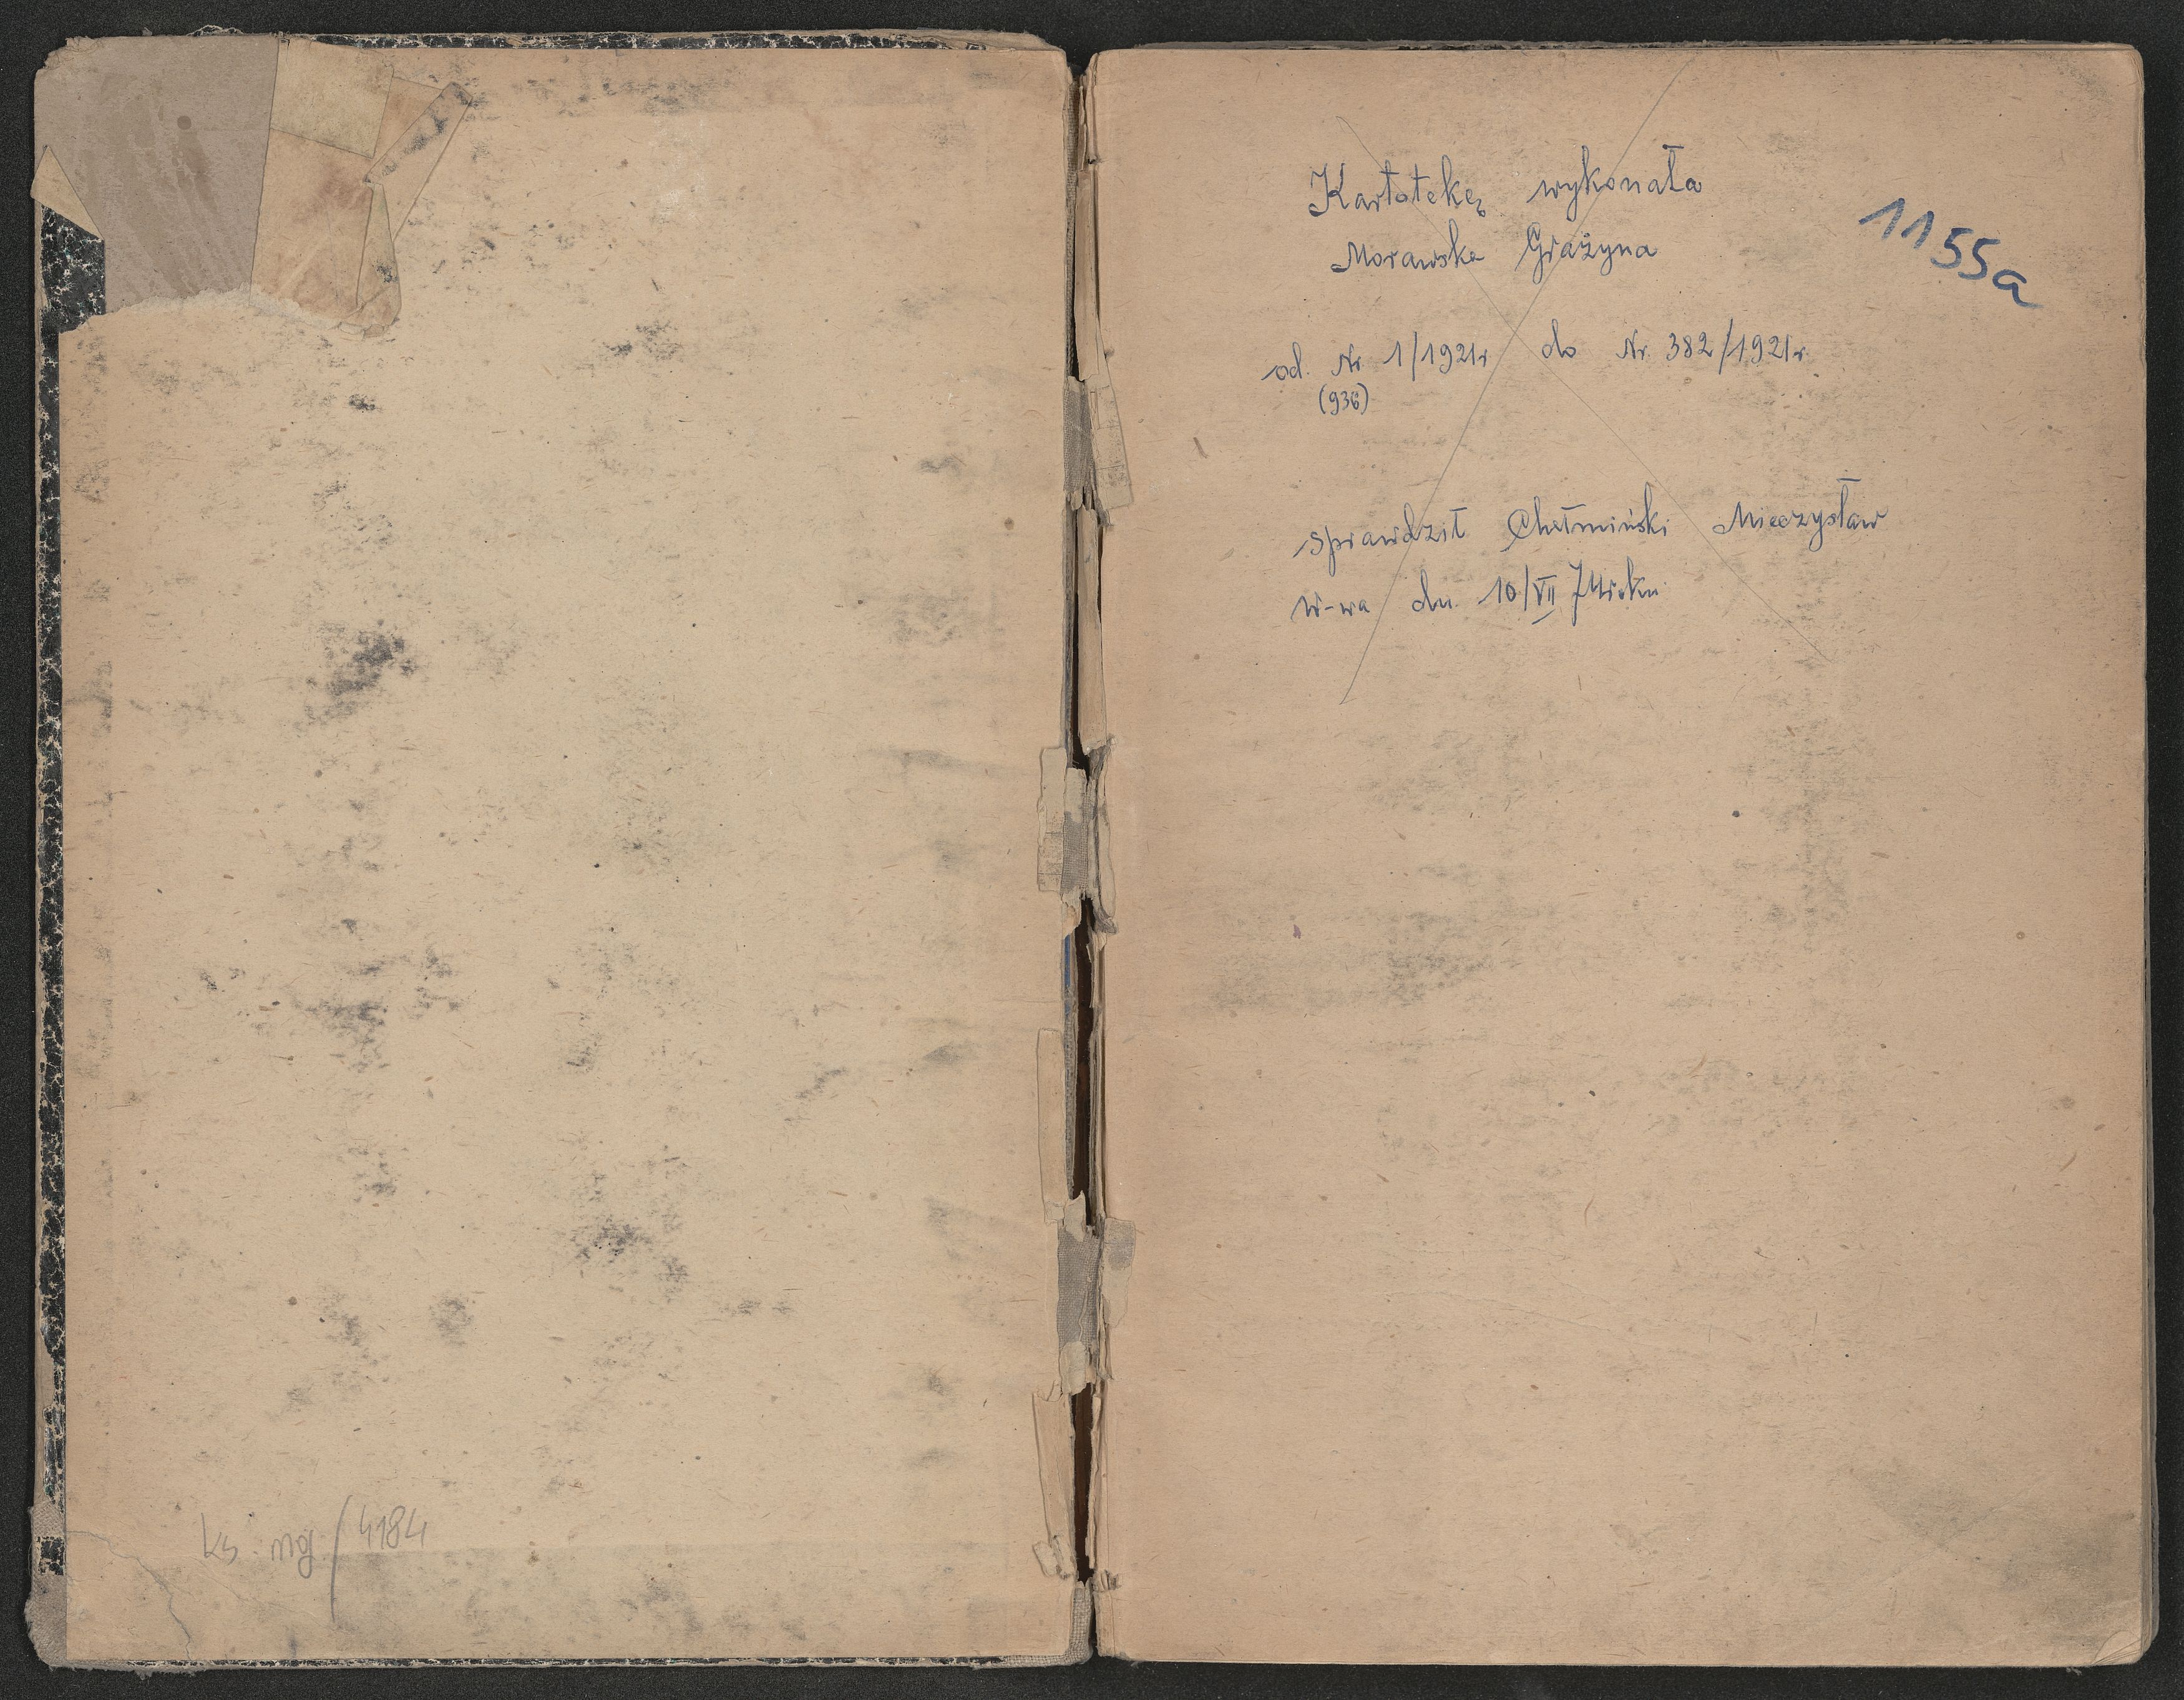 Kartotekę wykonała
Morawska Grażyna
1155a
od. Nr 1/1921r do Nr. 382/1921r.
(936)
sprawdził Chełmiński Mieczysław
W-wa dn. 10/VII 74 roku
ks mgł / 4184